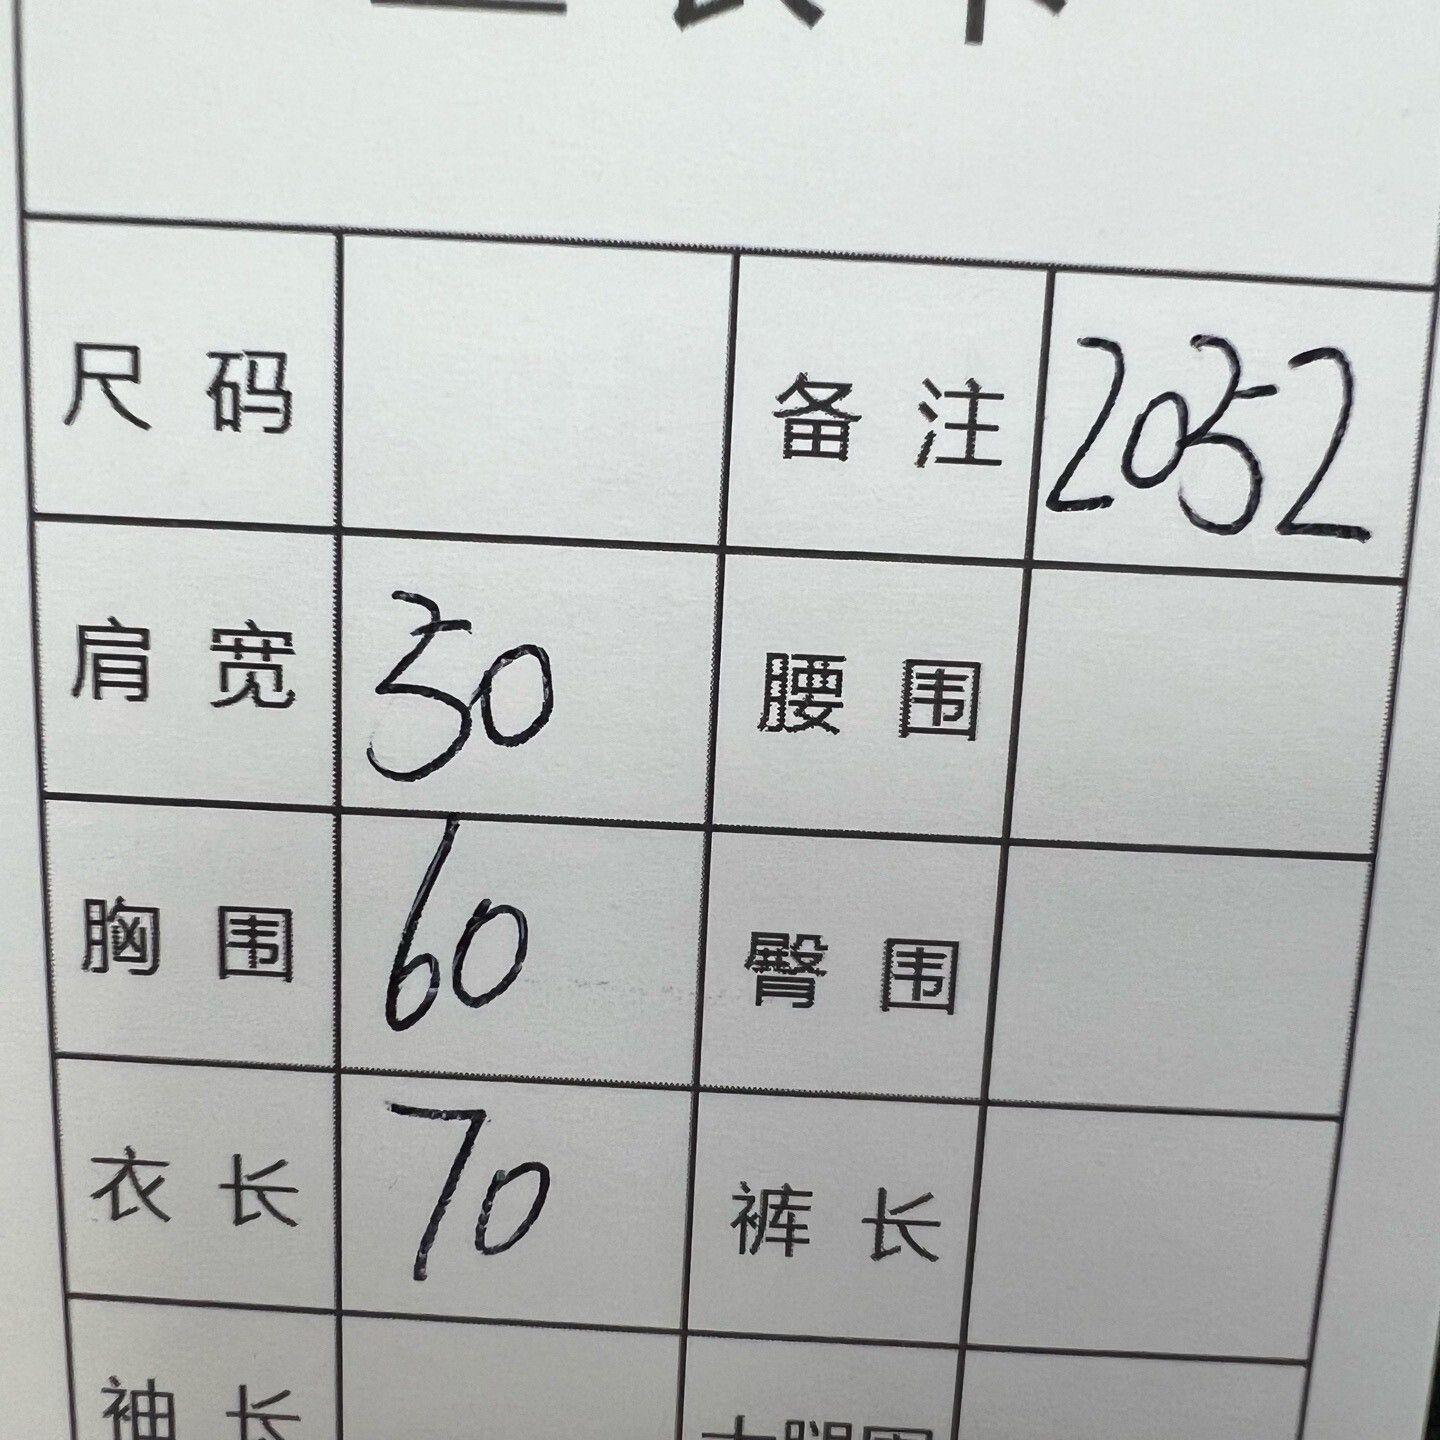 尺码 备注 2052
肩宽 50 腰围
胸围 60 臀围
衣长 70 裤长
袖长 大腿围